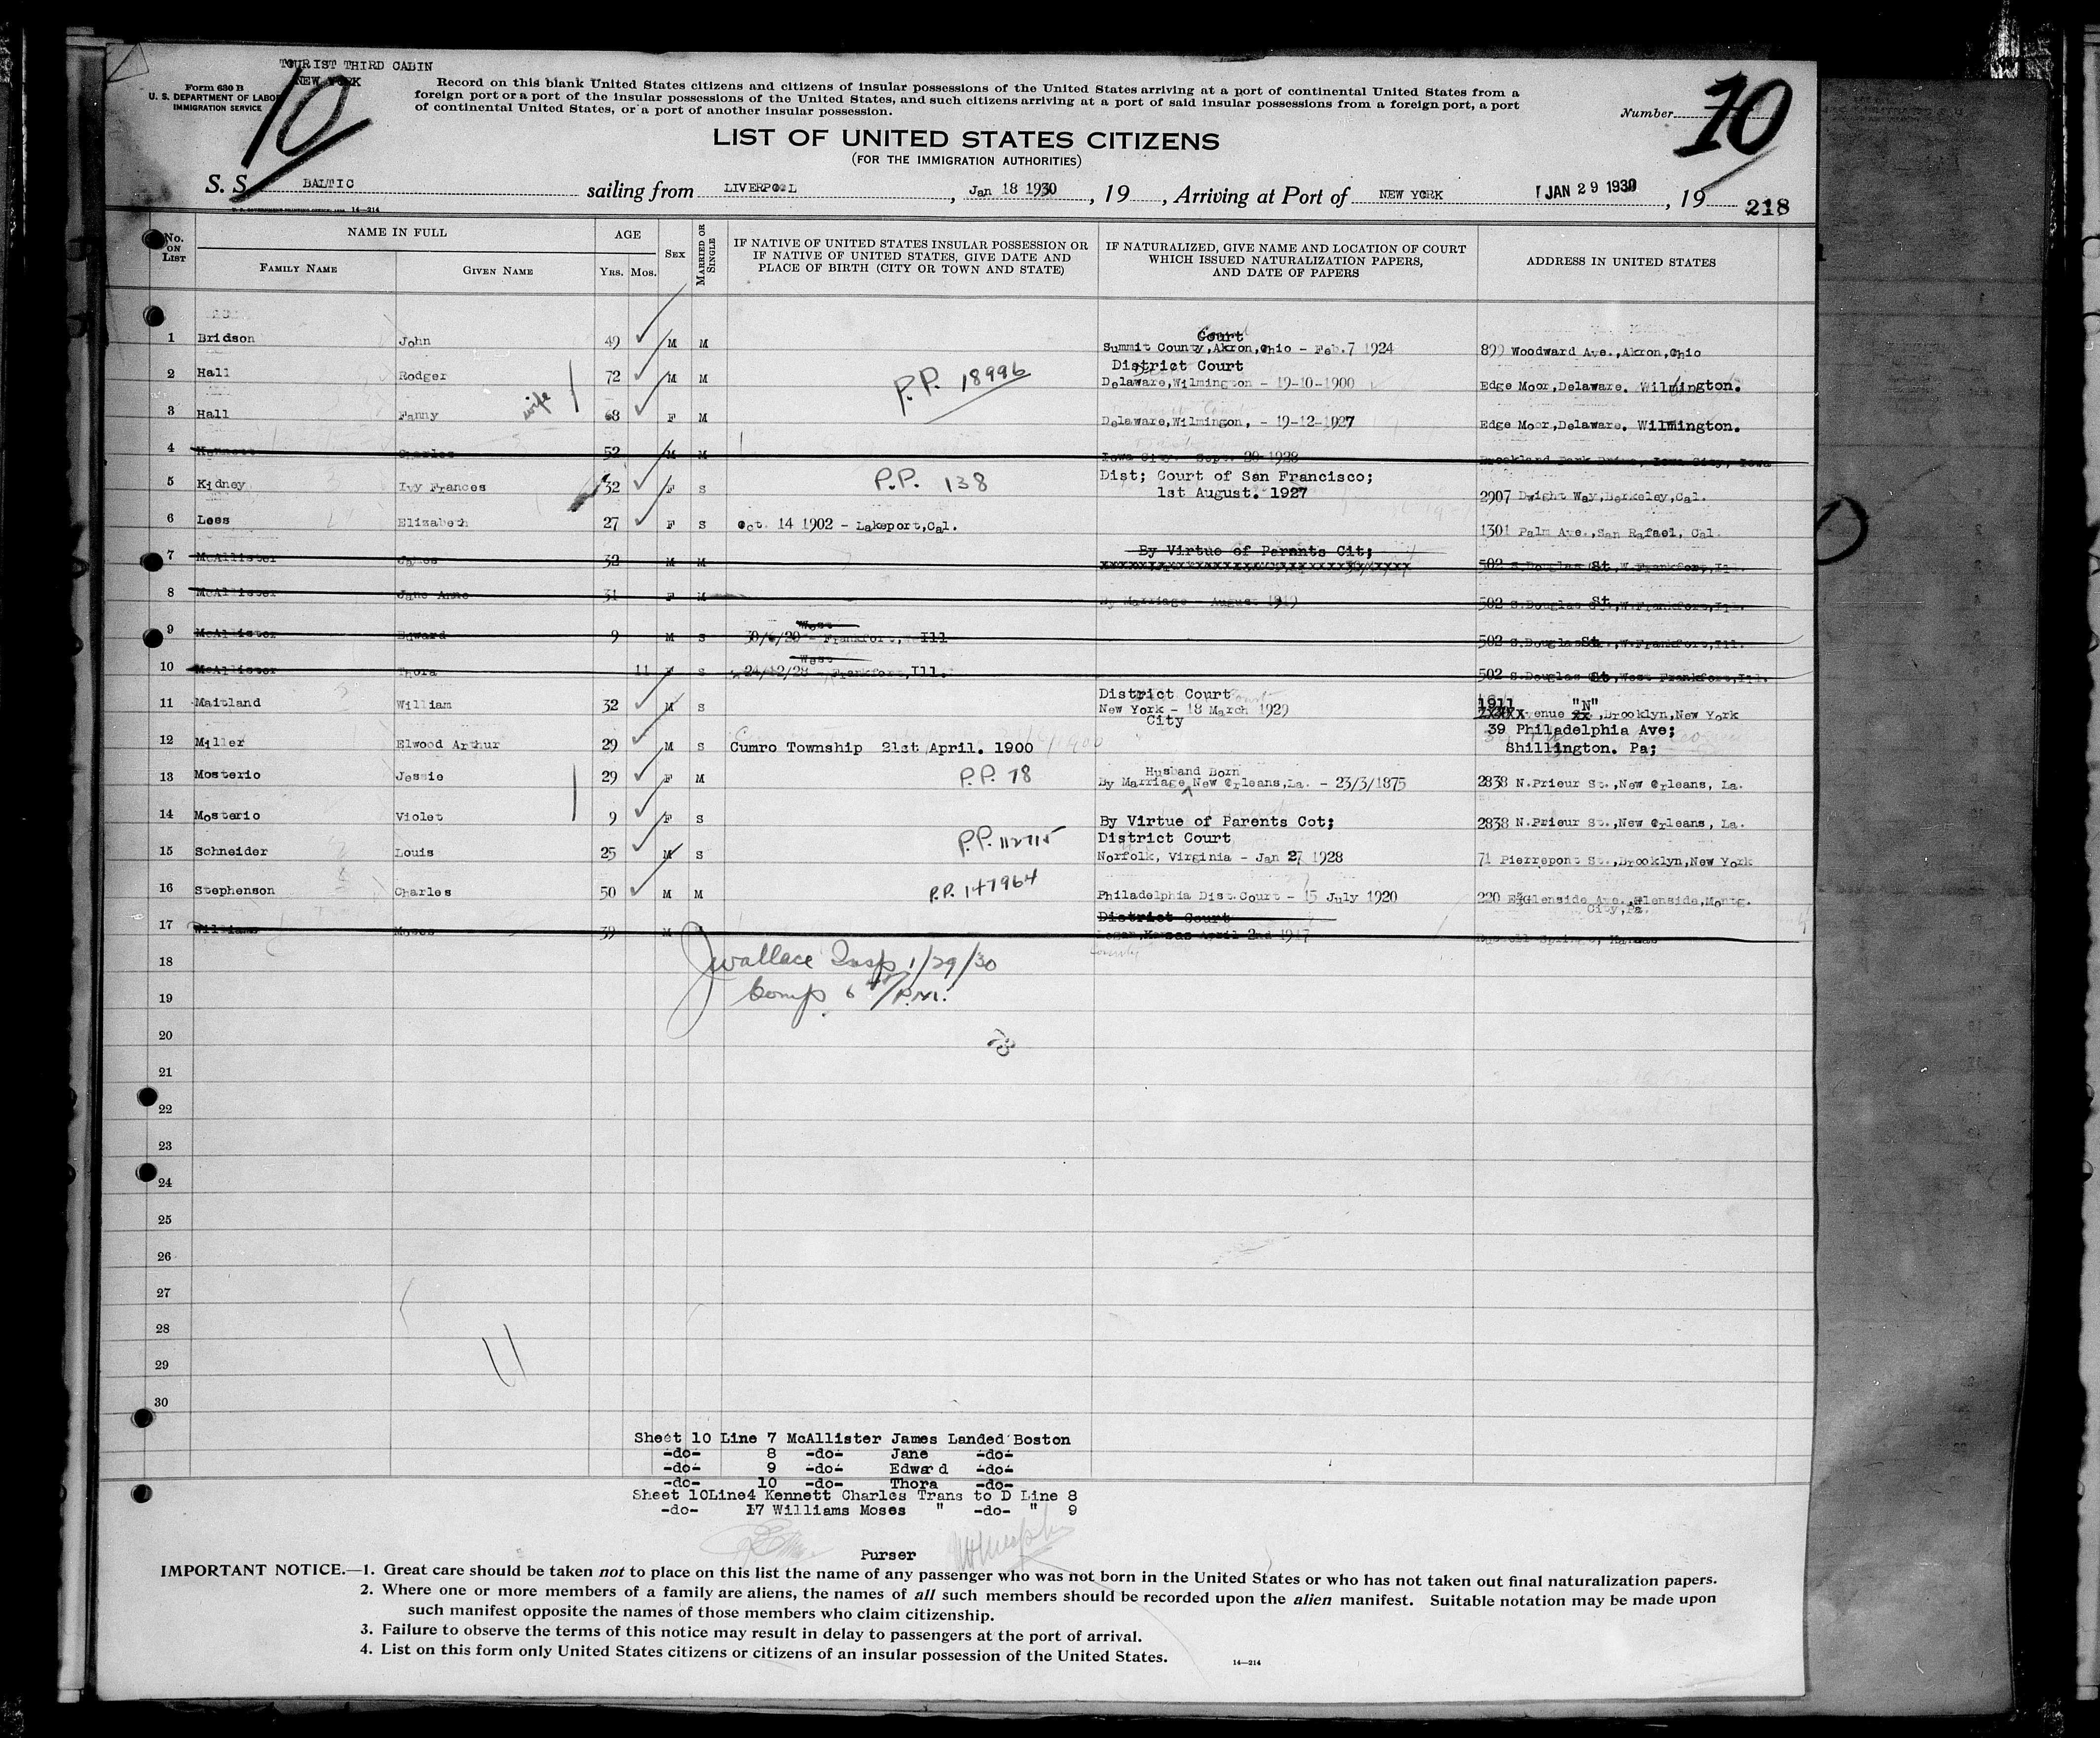 TOURIST THIRD CABIN
NEW YORK
Form 630 B
U. S. DEPARTMENT OF LABOR
IMMIGRATION SERVICE
10
Record on this blank United States citizens and citizens of insular possessions of the United States arriving at a port of continental United States from a
foreign port or a port of the insular possessions of the United States, and such citizens arriving at a port of said insular possessions from a foreign port, a port
of continental United States, or a port of another insular possession.
Number 10
LIST OF UNITED STATES CITIZENS
(FOR THE IMMIGRATION AUTHORITIES)
S. S. BALTIC sailing from LIVERPOOL, Jan 18 1930, 19, Arriving at Port of NEW YORK JAN 29 1930, 19
14-214
218
No. ON LIST
NAME IN FULL
FAMILY NAME GIVEN NAME
AGE
YRS. MOS.
SEX
MARRIED OR SINGLE
IF NATIVE OF UNITED STATES INSULAR POSSESSION OR
IF NATIVE OF UNITED STATES, GIVE DATE AND
PLACE OF BIRTH (CITY OR TOWN AND STATE)
IF NATURALIZED, GIVE NAME AND LOCATION OF COURT
WHICH ISSUED NATURALIZATION PAPERS,
AND DATE OF PAPERS
ADDRESS IN UNITED STATES
Court
1 Bridson John 49 M M Summit County,Akron,Ohio - Feb.7 1924 899 Woodward Ave.,Akron,Ohio
District Court
2 Hall Rodger 72 M M P.P. 18996 Delaware,Wilmington - 19-10-1900 Edge Moor,Delaware. Wilmington.
3 Hall Fanny wife 68 F M Delaware,Wilmingon, - 19-12-1927 Edge Moor,Delaware. Wilmington.
4 Kennett Charles 52 M M Iowa City. Sept. 20 1928 Brookland Park Drive, Iowa City, Iowa
Dist; Court of San Francisco;
5 Kidney Ivy Frances 32 F S P.P. 138 1st August. 1927 2907 Dwight Way,Berkeley,Cal.
6 Lees Elizabeth 27 F S Oct. 14 1902 - Lakeport,Cal. 1301 Palm Ave.,San Rafael, Cal.
By Virtue of Parents Cit;
7 McAllister James 32 M M 502 S.Douglas St,W.Frankfort,Ill.
8 McAllister Jane Anne 31 F M By Marriage - August 1919 502 S.Douglas St.,W.Frankfort,Ill.
West
9 McAllister Edward 9 M S 30/6/20 - Frankfort, Ill 502 S.Douglas St.,W.Frankfort,Ill.
West
10 McAllister Thora 11 F S 24/12/28 - Frankfort,Ill. 502 S.Douglas St,West Frankfort,Ill.
District Court
11 Maitland William 32 M S New York - 18 March 1929 1911 "N"
City
xxxxxvenue xx.,Brooklyn,New York
12 Miller Elwood Arthur 29 M S Cumro Township 21st April. 1900 39 Philadelphia Ave;
Shillington. Pa;
Husband Born
13 Mosterio Jessie 29 F M P.P. 78 By Marriage New Orleans,La. - 23/3/1875 2838 N.Prieur St.,New Orleans, La.
14 Mosterio Violet 9 F S By Virtue of Parents Cot; 2838 N.Prieur St.,New Orleans, La.
District Court
15 Schneider Louis 25 M S P.P. 112715 Norfolk, Virginia - Jan 27 1928 71 Pierrepont St.,Brooklyn,New York
16 Stephenson Charles 50 M M P.P. 147964 Philadelphia Dist.Court - 15 July 1920 220 E.Glenside Ave.,Glenside,Montg.
City,Pa.
District Court
17 Williams Moses 39 M Logan,Kansas April 2nd 1917 Russell Springs, Kansas
County
18
JWallace Insp 1/29/30
19
Comp 6 P.M.
20
21
22
23
24
25
26
27
28
29
30
Sheet 10 Line 7 McAllister James Landed Boston
-do- 8 -do- Jane -do-
-do- 9 -do- Edward -do-
-do- 10 -do- Thora -do-
Sheet 10Line4 Kennett Charles Trans to D Line 8
-do- 17 Williams Moses " -do- " 9
Purser
IMPORTANT NOTICE.—1. Great care should be taken not to place on this list the name of any passenger who was not born in the United States or who has not taken out final naturalization papers.
2. Where one or more members of a family are aliens, the names of all such members should be recorded upon the alien manifest. Suitable notation may be made upon
such manifest opposite the names of those members who claim citizenship.
3. Failure to observe the terms of this notice may result in delay to passengers at the port of arrival.
4. List on this form only United States citizens or citizens of an insular possession of the United States.
14—214